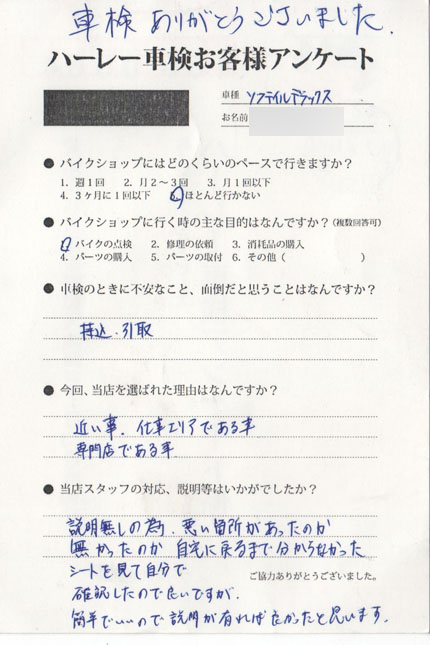 車検 ありがとうございました.
ハーレー車検お客様アンケート
車種 ソフテイルデラックス
お名前
● バイクショップにはどのくらいのペースで行きますか？
1. 週1回 2. 月2～3回 3. 月1回以下
4. 3ヶ月に1回以下 5. ほとんど行かない
● バイクショップに行く時の主な目的はなんですか？(複数回答可)
1. バイクの点検 2. 修理の依頼 3. 消耗品の購入
4. パーツの購入 5. パーツの取付 6. その他（ ）
● 車検のときに不安なこと、面倒だと思うことはなんですか？
持込.引取
● 今回、当店を選ばれた理由はなんですか？
近い事. 仕事エリアである事
専門店である事
● 当店スタッフの対応、説明等はいかがでしたか？
説明無しの為. 悪い箇所があったのか
無かったのか 自宅に戻るまで分からなかった
シートを見て自分で
ご協力ありがとうございました。
確認したので良いですが.
簡単でいいので説明が有れば良かったと思います.